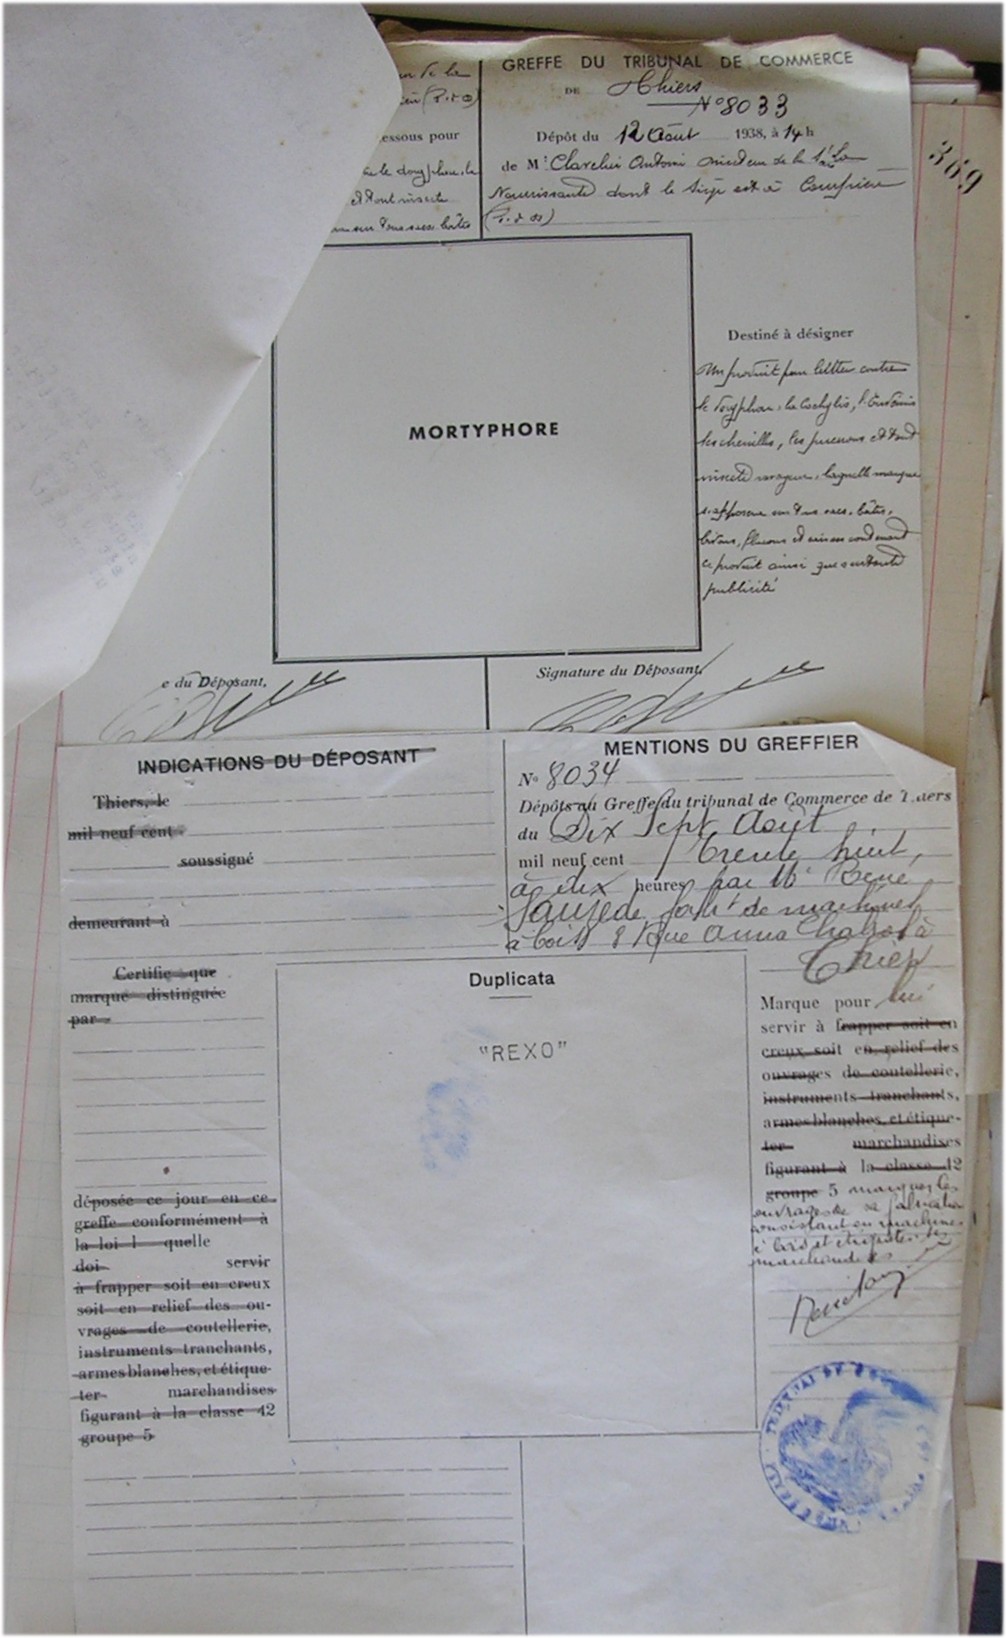 GREFFE DU TRIBUNAL DE COMMERCE
DE Thiers
N° 8033
Dépôt du 12 Août 1938, à 14 h
de Mr Antoine de la Sté La
Nourrissante dont le siège est à Courpière
(P. de D)
de la
(P. de D)
essous pour
le doryphore, la
et tout insecte
sur tous sacs boîtes
MORTYPHORE
Destiné à désigner
Un produit pour lutter contre
le doryphore, la Cochylis, l'Eudémis
les chenilles, les pucerons et tout
insecte ravageur, laquelle marque
s'appose sur tous sacs, boîtes,
bidons, flacons et caisses contenant
ce produit ainsi que sur toute
publicité
e du Déposant,
Signature du Déposant,
369
INDICATIONS DU DÉPOSANT
Thiers, le
mil neuf cent
soussigné
demeurant à
Certifie que
marque distinguée
par
déposée ce jour en ce
greffe conformément à
la loi l quelle
doi servir
à frapper soit en creux
soit en relief des ou-
vrages de coutellerie,
instruments tranchants,
armes blanches, et étique-
ter marchandises
figurant à la classe 12
groupe 5
MENTIONS DU GREFFIER
N° 8034
Dépôts au Greffe du tribunal de Commerce de Thiers
du Dix Sept Août
mil neuf cent trente huit,
à dix heures par Mr René
Sauzède fabt de machines
à bois 8 Rue Anna Chabrol à
Thiers
Duplicata
"REXO"
Marque pour lui
servir à frapper soit en
creux soit en relief des
ouvrages de coutellerie,
instruments tranchants,
armes blanches, et étique-
ter marchandises
figurant à la classe 12
groupe 5 marquer les
ouvrages de sa fabrication
consistant en machines
à bois et étiqueter les
marchandises
TRIBUNAL DE